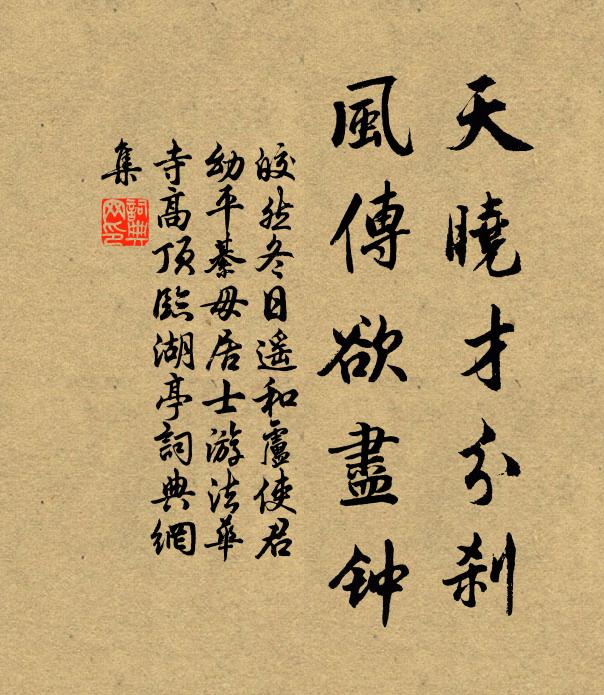 天曉才分刹
風傳欲盡钟
皎然冬日遥和盧使君
幼平綦毋居士游法華
寺高頂臨湖亭詞典網
集
詞典
网印